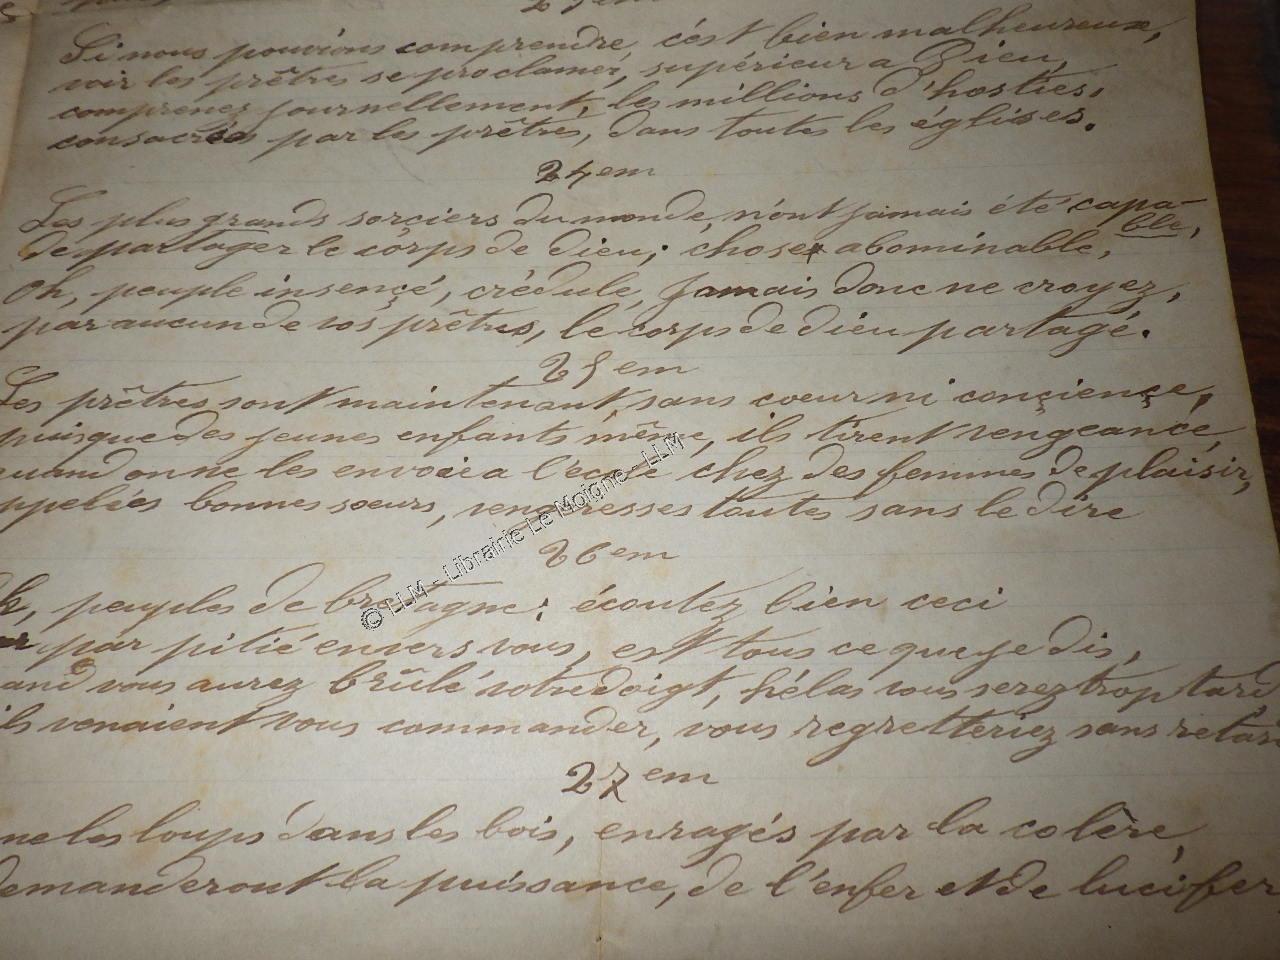 23em
Si nous pouvions comprendre, c'ést bien malheureux,
voir les prêtres se proclamer, supérieur a Dieu,
comprenez journellement, les millions d'hosties,
consacrées par les prêtres, dans toutes les églises.
24em
Les plus grands sorciers du monde, n'ont jamais été capa-
ble,
de partager le corps de dieu; chose abominable,
Oh, peuple insençé, crédule, jamais donc ne croyez,
par aucun de vos prêtres, le corps de dieu partagé.
25em
Les prêtres sont maintenant, sans coeur ni conçiençe,
puisque des jeunes enfants même, ils tirent vengeance,
quand on ne les envoie a l'école chez des femmes de plaisir,
appelées bonnes soeurs, vengresses toutes sans le dire
26em
peuples de bretagne; écoutez bien ceci
par pitié envers vous, est tous ce que je dis,
quand vous aurez brûlé votre doigt, hélas vous serez trop tard
ils venaient vous commander, vous regretteriez sans retar
27em
me les loups dans les bois, enragés par la colère,
demanderont la puissance, de l'enfer et de lucifer
© LLM - Librairie Le Moigne - LLM